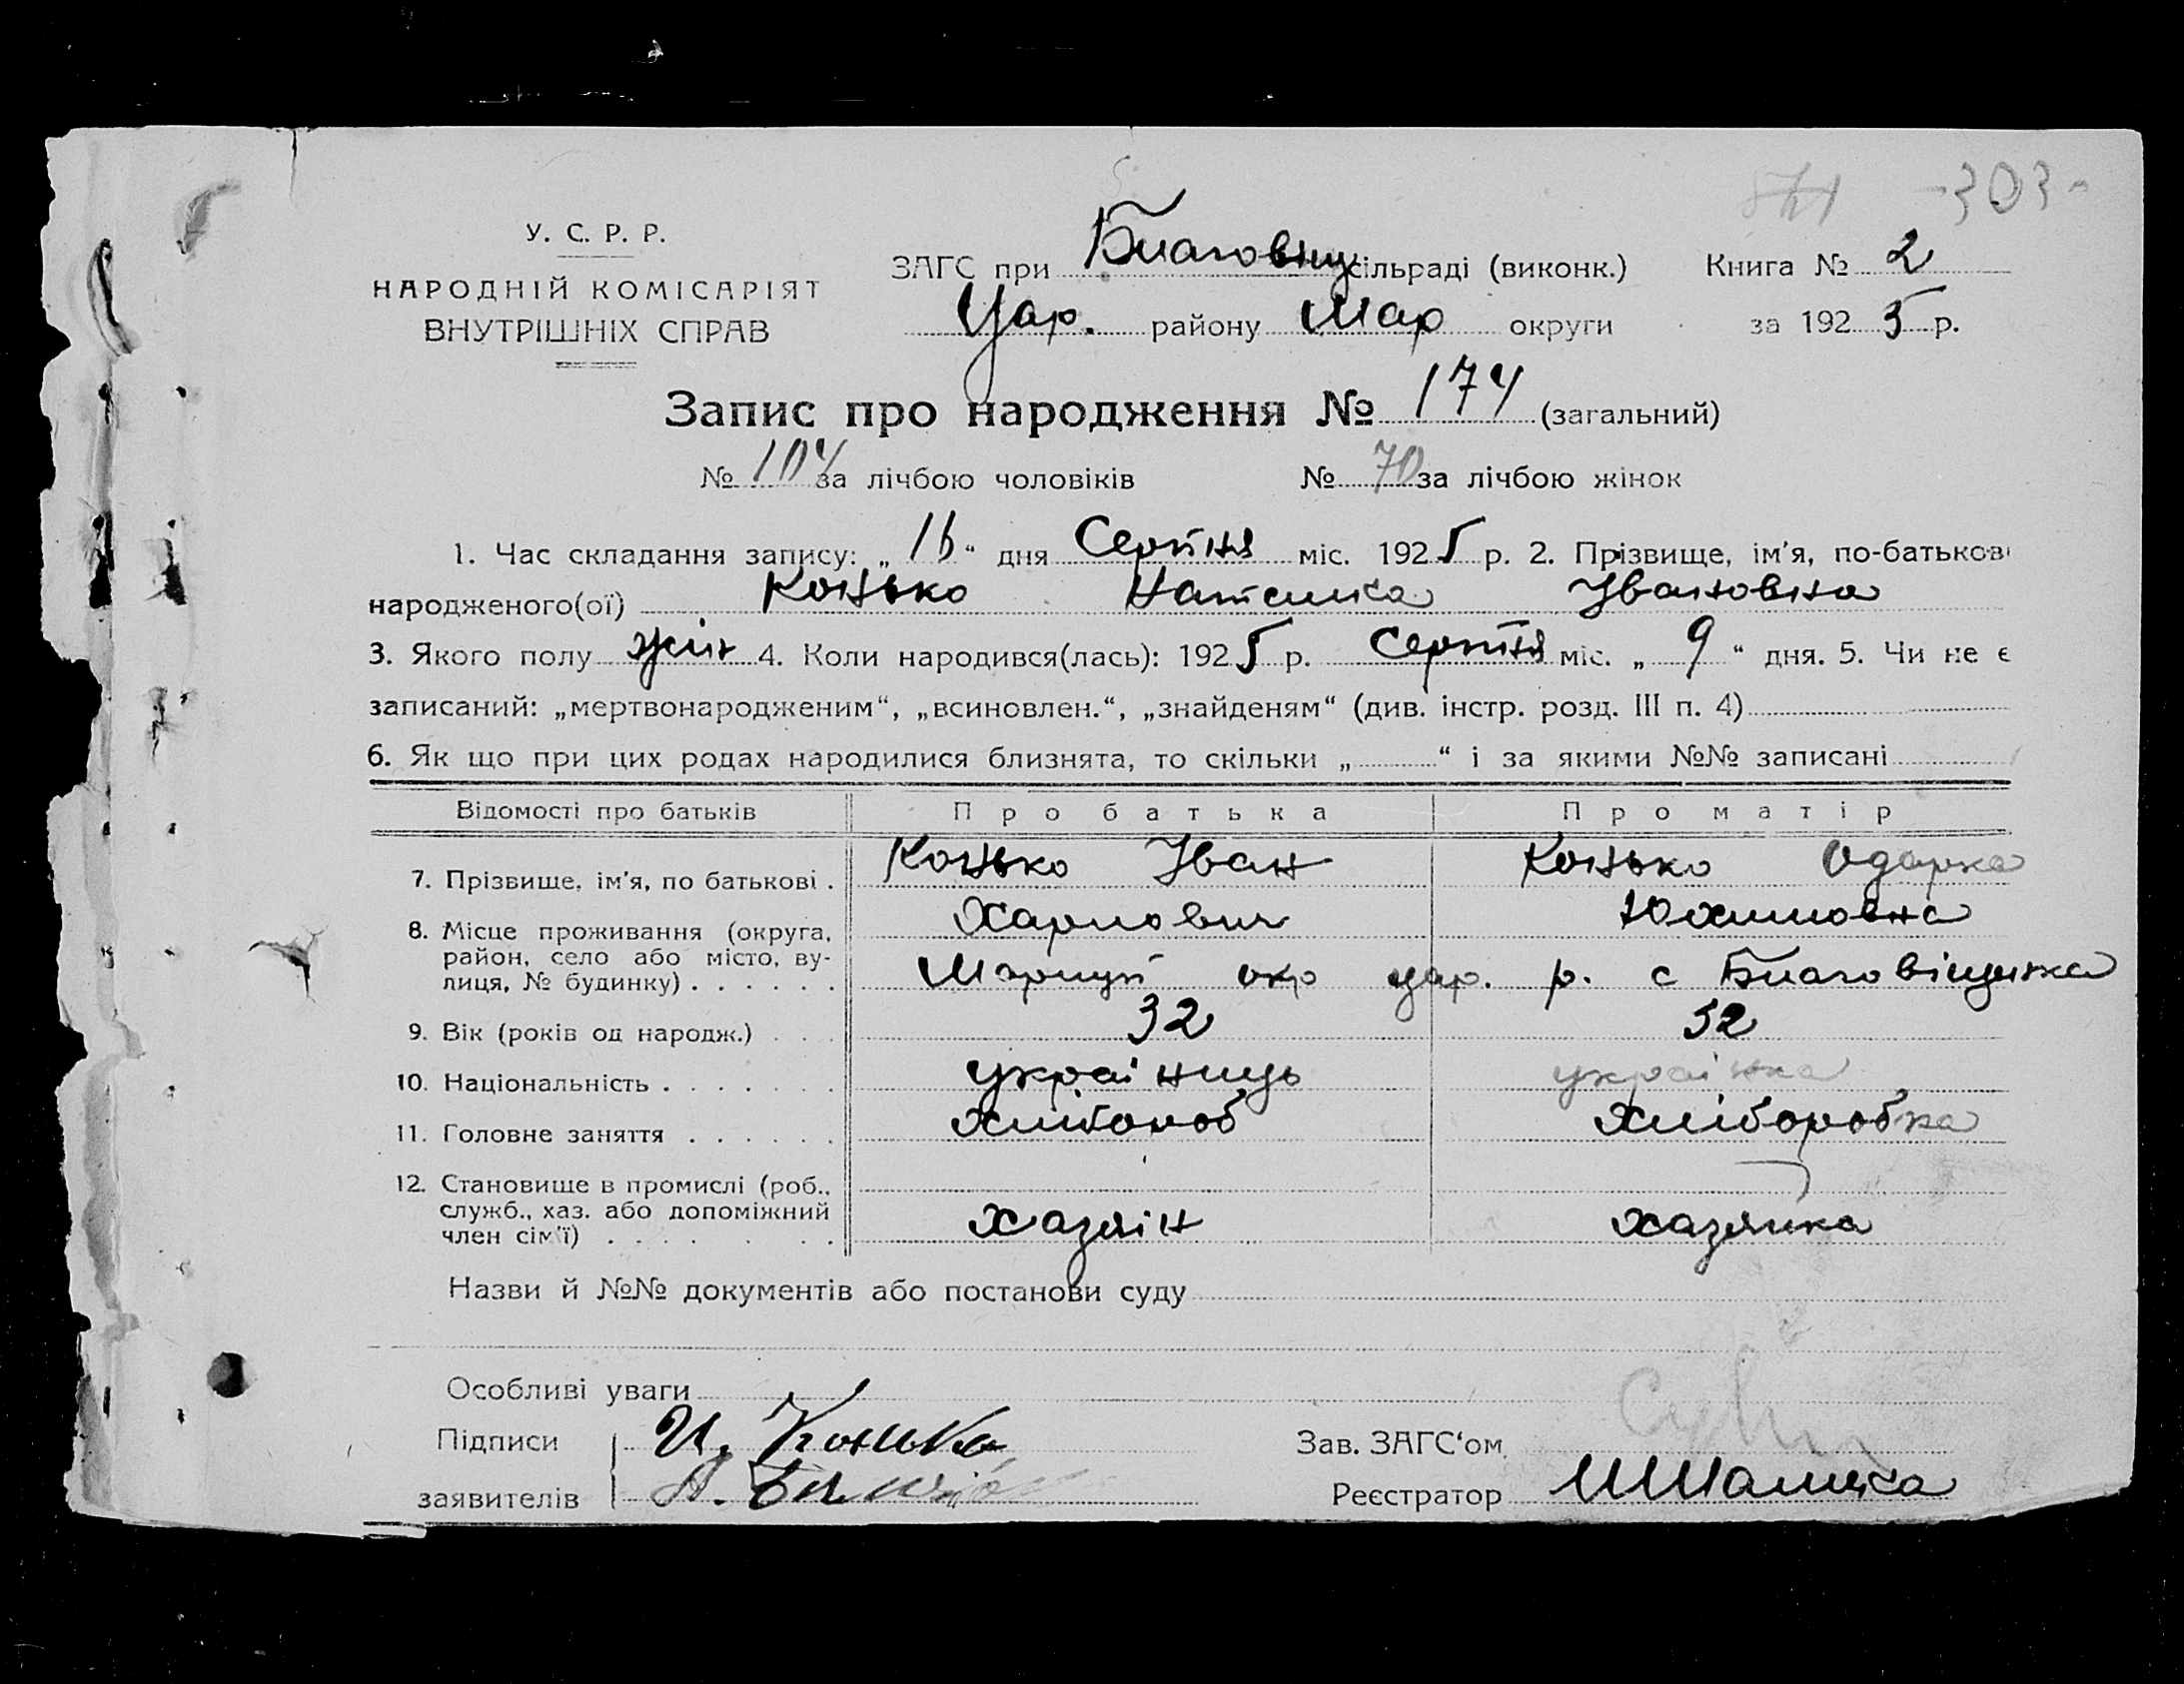 -303-
У. С. Р. Р.
НАРОДНІЙ КОМІСАРІЯТ
ВНУТРІШНІХ СПРАВ
ЗАГС при Благовіщ сільраді (виконк.) Книга № 2
Цар. району Мар округи за 1925 р.
Запис про народження № 174 (загальний)
№ 104 за лічбою чоловіків № 70 за лічбою жінок
1. Час складання запису: „16“ дня Серпня міс. 1925 р. 2. Прізвище, ім'я, по-батькові
народженого(ої) Конько Наталка Івановна
3. Якого полу жін 4. Коли народився(лась): 1925 р. Серпня міс. „9“ дня. 5. Чи не є
записаний: „мертвонародженим“, „всиновлен.“, „знайденям“ (див. інстр. розд. III п. 4)
6. Як що при цих родах народилися близнята, то скільки „ “ і за якими №№ записані
Відомості про батьків Про батька Про матір
7. Прізвище, ім'я, по батькові . Конько Іван Конько Одарка
Харпович Юхимовна
8. Місце проживання (округа, район, село або місто, вулиця, № будинку) . . . . . . Маріуп окр цар. р. с Благовіщенка
9. Вік (років од народж.) . . . 32 32
10. Національність . . . . . . . украінець украінка
11. Головне заняття . . . . . . хлібороб хліборобка
12. Становище в промислі (роб., служб., хаз. або допоміжний член сім'ї) . . . . . . . хазяін хазяйка
Назви й №№ документів або постанови суду
Особливі уваги
Підписи И. Конько Зав. ЗАГС‘ом
заявителів А. Реєстратор